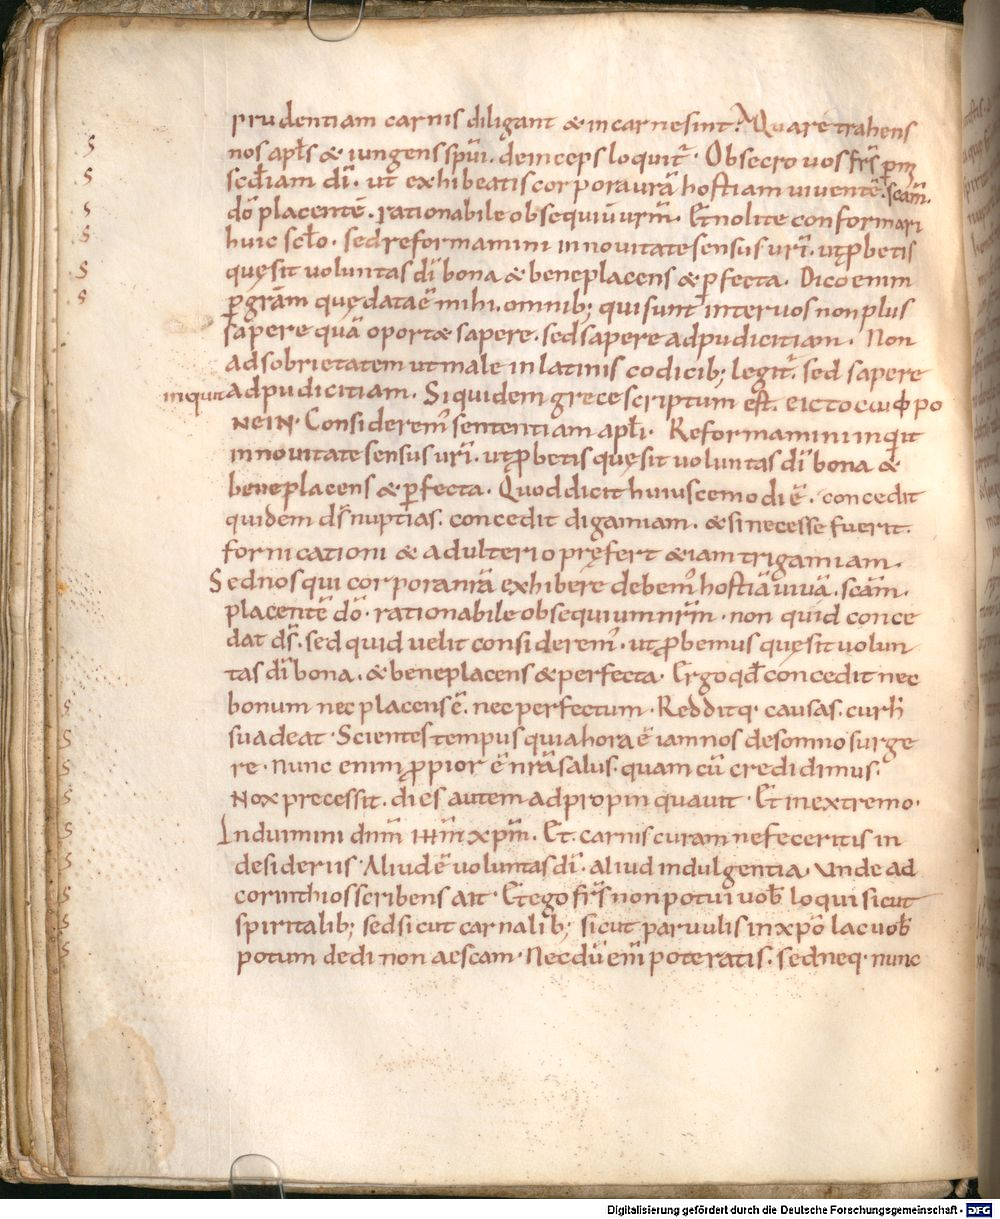 prudentiam carnis diligant & in carne sint? Quare trahens
nos apl̄s & iungens spūi. deinceps loquit̄. Obsecro uos fr̄s ꝑ m̄
sc̄diam dī. ut exhibeatis corpora ur̄a hostiam uiuentē. sc̄am.
dō placentē. rationabile obsequiū ur̄m. Et nolite conformari
huic sc̄lo. sed reformamini in nouitate sensus ur̄i. ut ꝓbetis
quę sit uoluntas dī bona & beneplacens & ꝑfecta. Dico enim
ꝑ gr̄am quę data ē mihi. omnib; qui sunt inter uos non plus
sapere quā oport& sapere. sed sapere ad pudicitiam. Non
ad sobrietatem ut male in latinis codicib; legit̄. sed sapere
inquit ad pudicitiam. Siquidem grece scriptum est. ΕΙC ΤΟ CωΦΡΟ
ΝΕΙΝ. Considerem̄ sententiam apl̄i. Reformamini inqit
in nouitate sensus ur̄i. ut ꝓbetis quę sit uoluntas dī bona &
beneplacens & ꝑfecta. Quod dicit huiuscemodi ē. concedit
quidem ds̄ nuptias. concedit digamiam. & si necesse fuerit.
fornicationi & adulterio pręfert & iam trigamiam.
Sed nos qui corpora nr̄a exhibere debem̄ hostiā uiuā. sc̄am.
placentē dō. rationabile obsequium nr̄m. non quid conce
dat ds̄. sed quid uelit considerem̄. ut ꝓbemus quę sit uolun
tas dī bona. & beneplacens & perfecta. Ergo qd̄ concedit nec
bonum nec placens ē. nec perfectum. Redditq causas. cur h̄
suadeat. Scientes tempus quia hora ē iam nos de somno surge
re. Nunc enim ꝓpior ē nr̄a salus. quam cū credidimus.
Nox precessit. dies autem adpropinquauit. Et in extremo.
Induimini dnm̄ ihm̄ xpm̄. Et carnis curam ne feceritis in
desideriis. Aliud ē uoluntas dī. aliud indulgentia. Unde ad
corinthios scribens ait. Et ego fr̄s non potui uob̄ loqui sicut
spiritalib; sed sicut carnalib; sicut paruulis in xpō lac uob̄
potum dedi non aescam. Necdū enī poteratis. sed neq. nunc
Digitalisierung gefördert durch die Deutsche Forschungsgemeinschaft - DFG